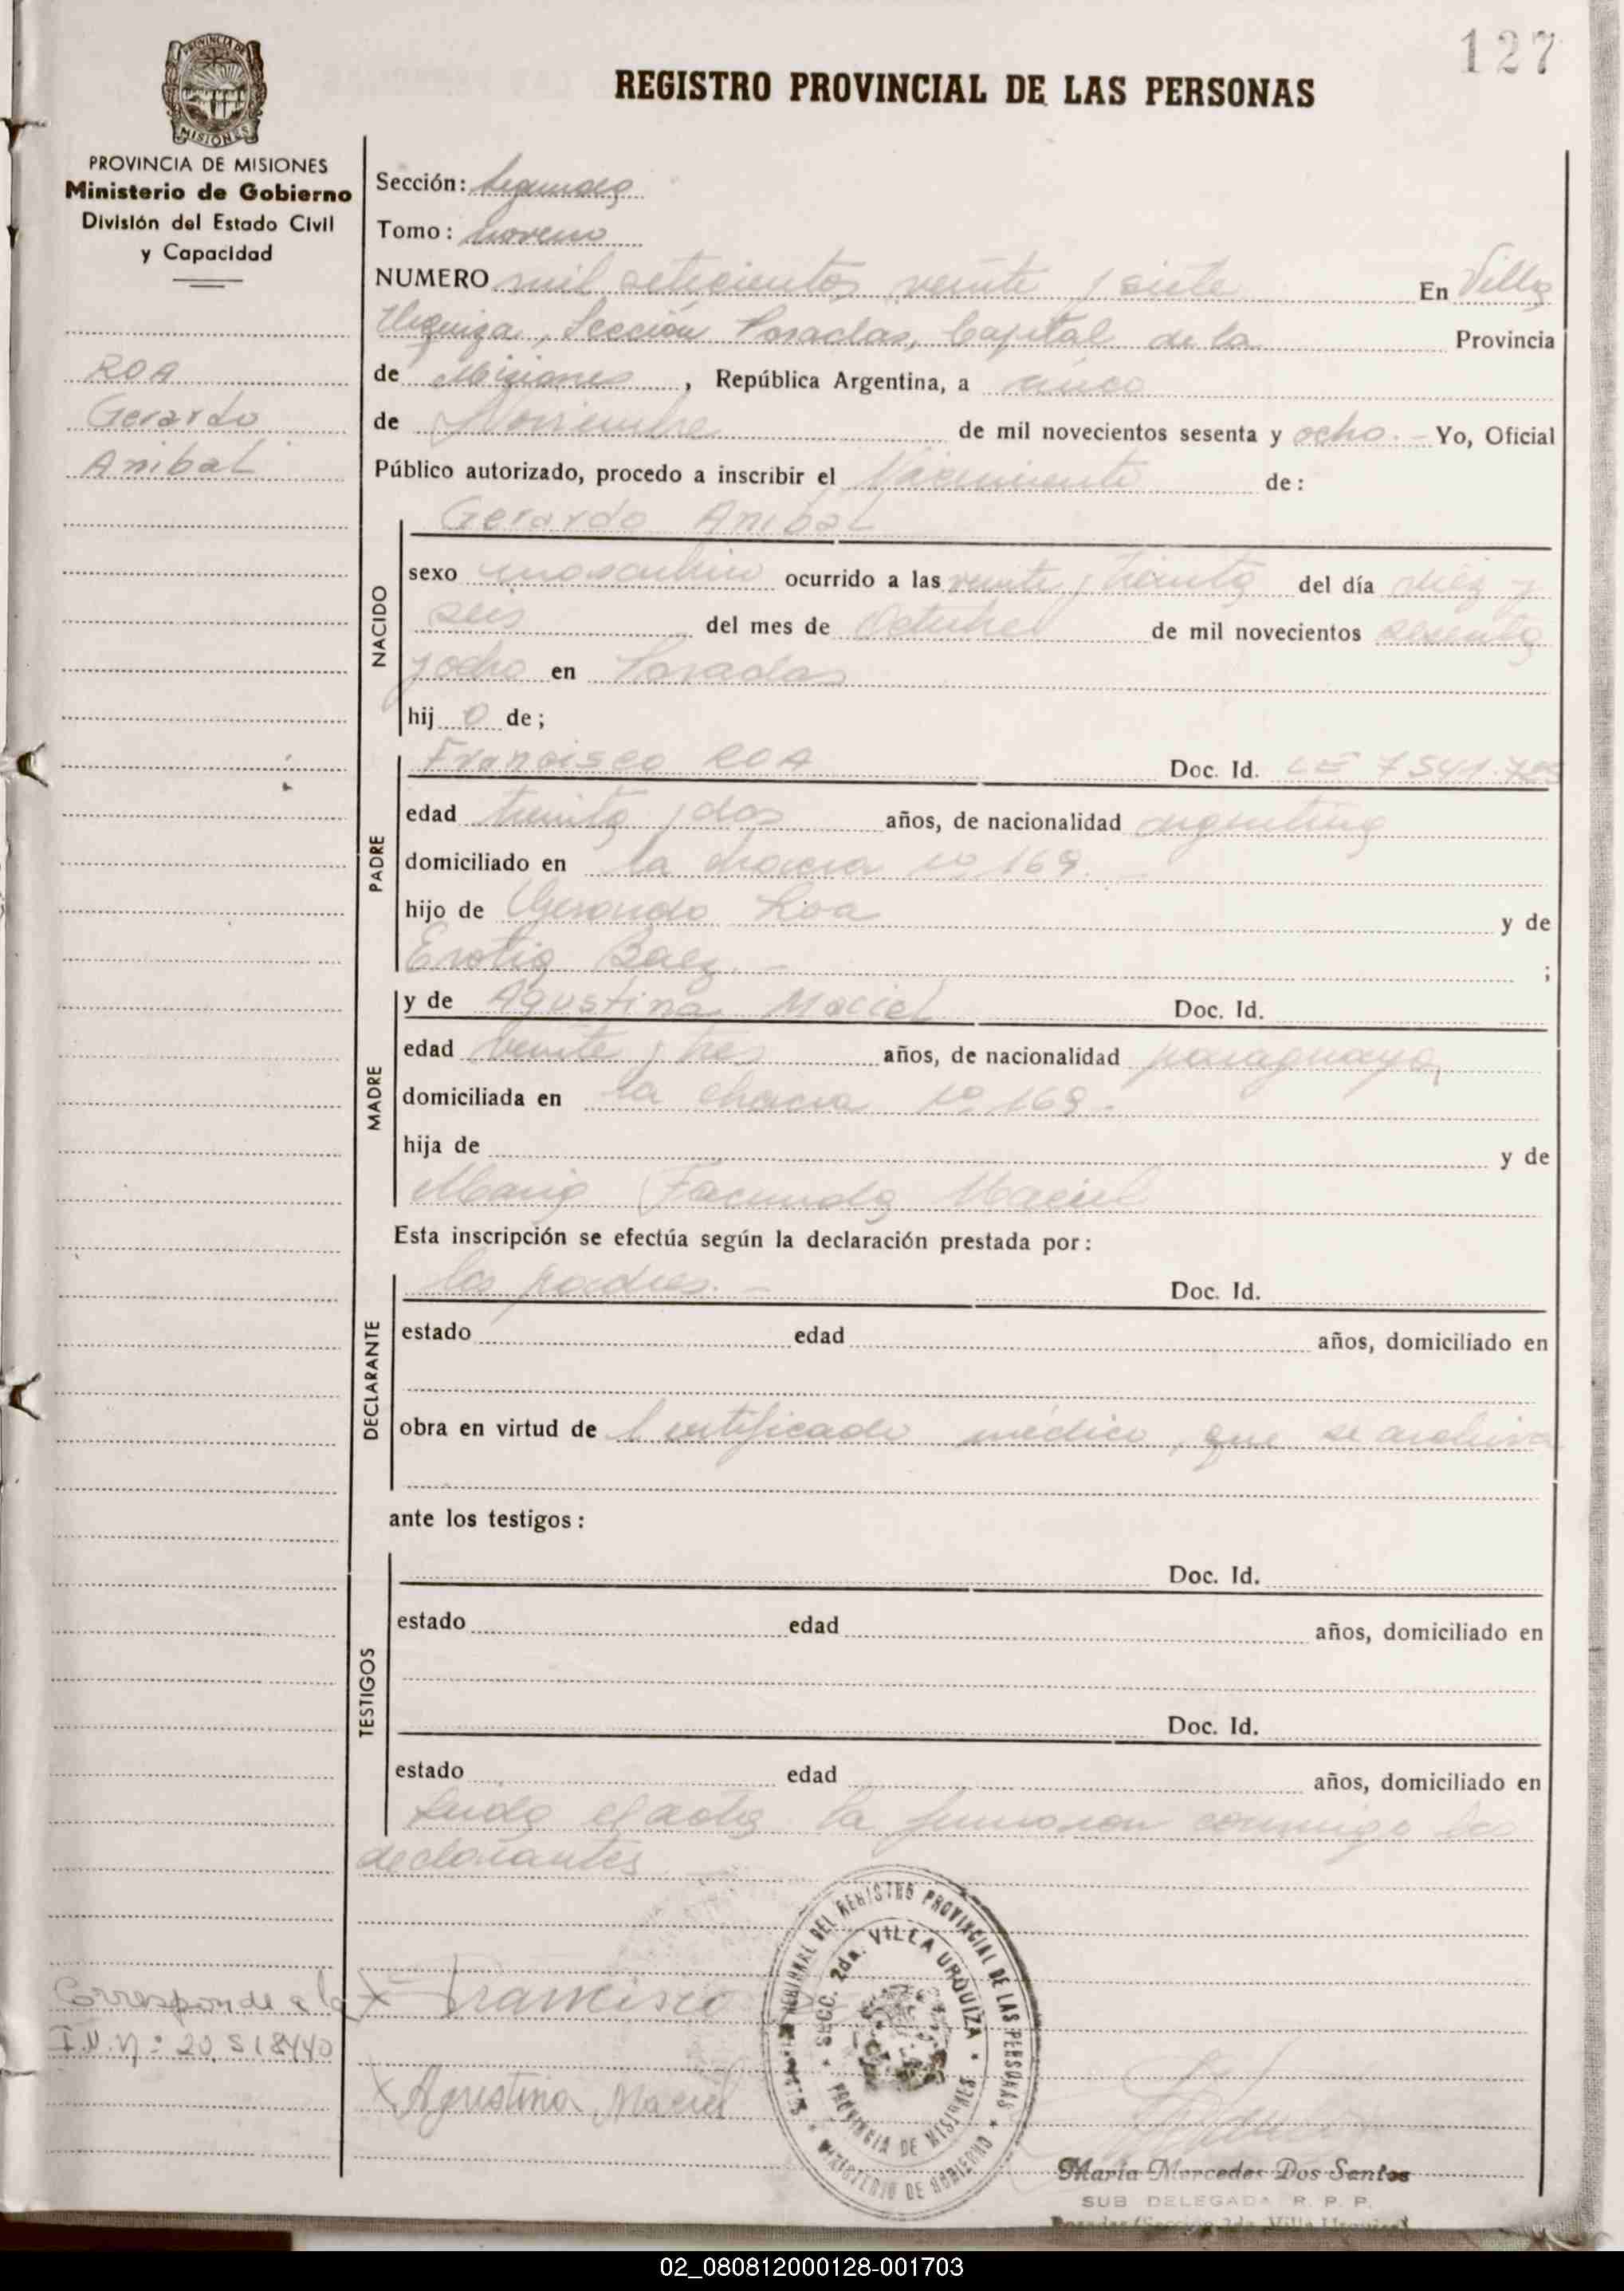 127
REGISTRO PROVINCIAL DE LAS PERSONAS
PROVINCIA DE MISIONES
MISIONES
PROVINCIA DE MISIONES
Ministerio de Gobierno
División del Estado Civil
y Capacidad
ROA
Gerardo
Anibal
Sección: Segunda
Tomo: noveno
NUMERO mil setecientos veinte y siete En Villa
Urquiza, Sección Posadas, Capital de la Provincia
de Misiones, República Argentina, a cinco
de Noviembre de mil novecientos sesenta y ocho.- Yo, Oficial
Público autorizado, procedo a inscribir el Nacimiento de:
Gerardo Anibal
NACIDO
sexo masculino ocurrido a las veinte y treinta del día diez y
seis del mes de Octubre de mil novecientos sesenta
y ocho en Posadas
hij o de;
PADRE
Francisco ROA Doc. Id. LE 7541.
edad treinta y dos años, de nacionalidad argentina
domiciliado en la chacra nº 169.-
hijo de Gerardo Roa y de
Erotia Baez.- ;
MADRE
y de Agustina Maciel Doc. Id.
edad veinte y tres años, de nacionalidad paraguaya,
domiciliada en la chacra nº 169.-
hija de y de
Maria Facunda Maciel
Esta inscripción se efectúa según la declaración prestada por:
DECLARANTE
los padres.- Doc. Id.
estado edad años, domiciliado en
obra en virtud de Certificado médico, que se archiva
ante los testigos:
TESTIGOS
Doc. Id.
estado edad años, domiciliado en
Doc. Id.
estado edad años, domiciliado en
Leida el acta la firmaron conmigo los
declarantes
Corresponde a la
I.N.Nº: 20.518440
X Francisco
X Agustina Maciel
DEL REGISTRO PROVINCIAL DE LAS PERSONAS
SECC. 2da. VILLA URQUIZA
PROVINCIA DE MISIONES
MINISTERIO DE GOBIERNO
María Mercedes Dos Santos
SUB DELEGADA R. P. P.
Posadas (Sección 2da. Villa Urquiza)
02_080812000128-001703